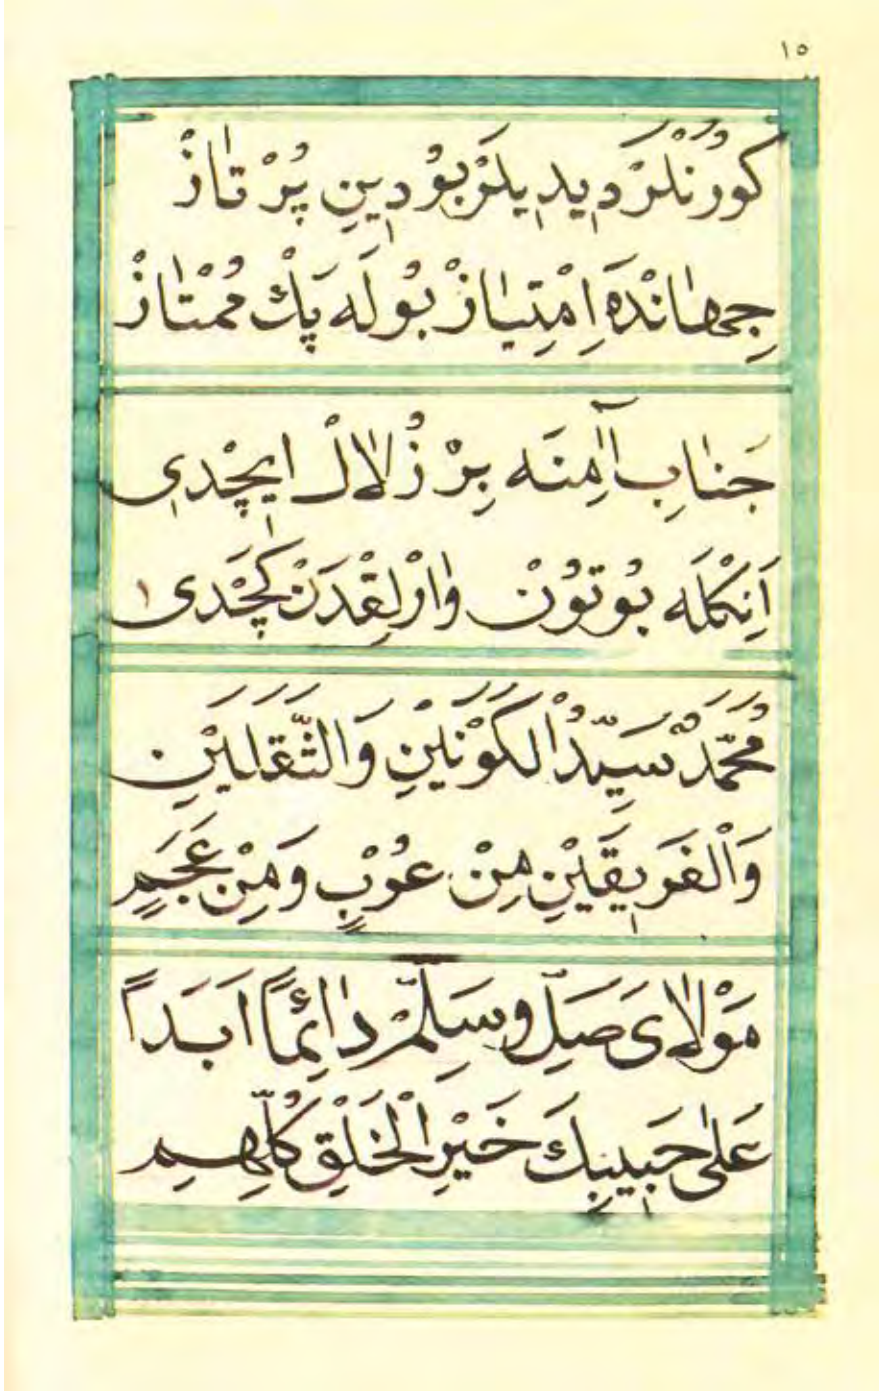 ١٥
كورُنْلَرْ ديديلَرْ بُو دِينِ پُرْتازْ
جِهانْدَه اِمْتِيازْ بُولَه پَكْ مُمْتازْ
جَنابِ آمِنَه بِرْ زُلالْ ايچْدِى
اَنِكْلَه بُوتُونْ وارْلِقْدَنْ كَچْدِى
مُحَمَّدٌ سَيِّدُ الْكَوْنَيْنِ وَالثَّقَلَيْنِ
وَالْفَرِيقَيْنِ مِنْ عُرْبٍ وَمِنْ عَجَمٍ
مَوْلاىَ صَلِّ وسَلِّمْ دائِماً اَبَداً
عَلى حَبِيبِكَ خَيْرِ الْخَلْقِ كُلِّهِمِ